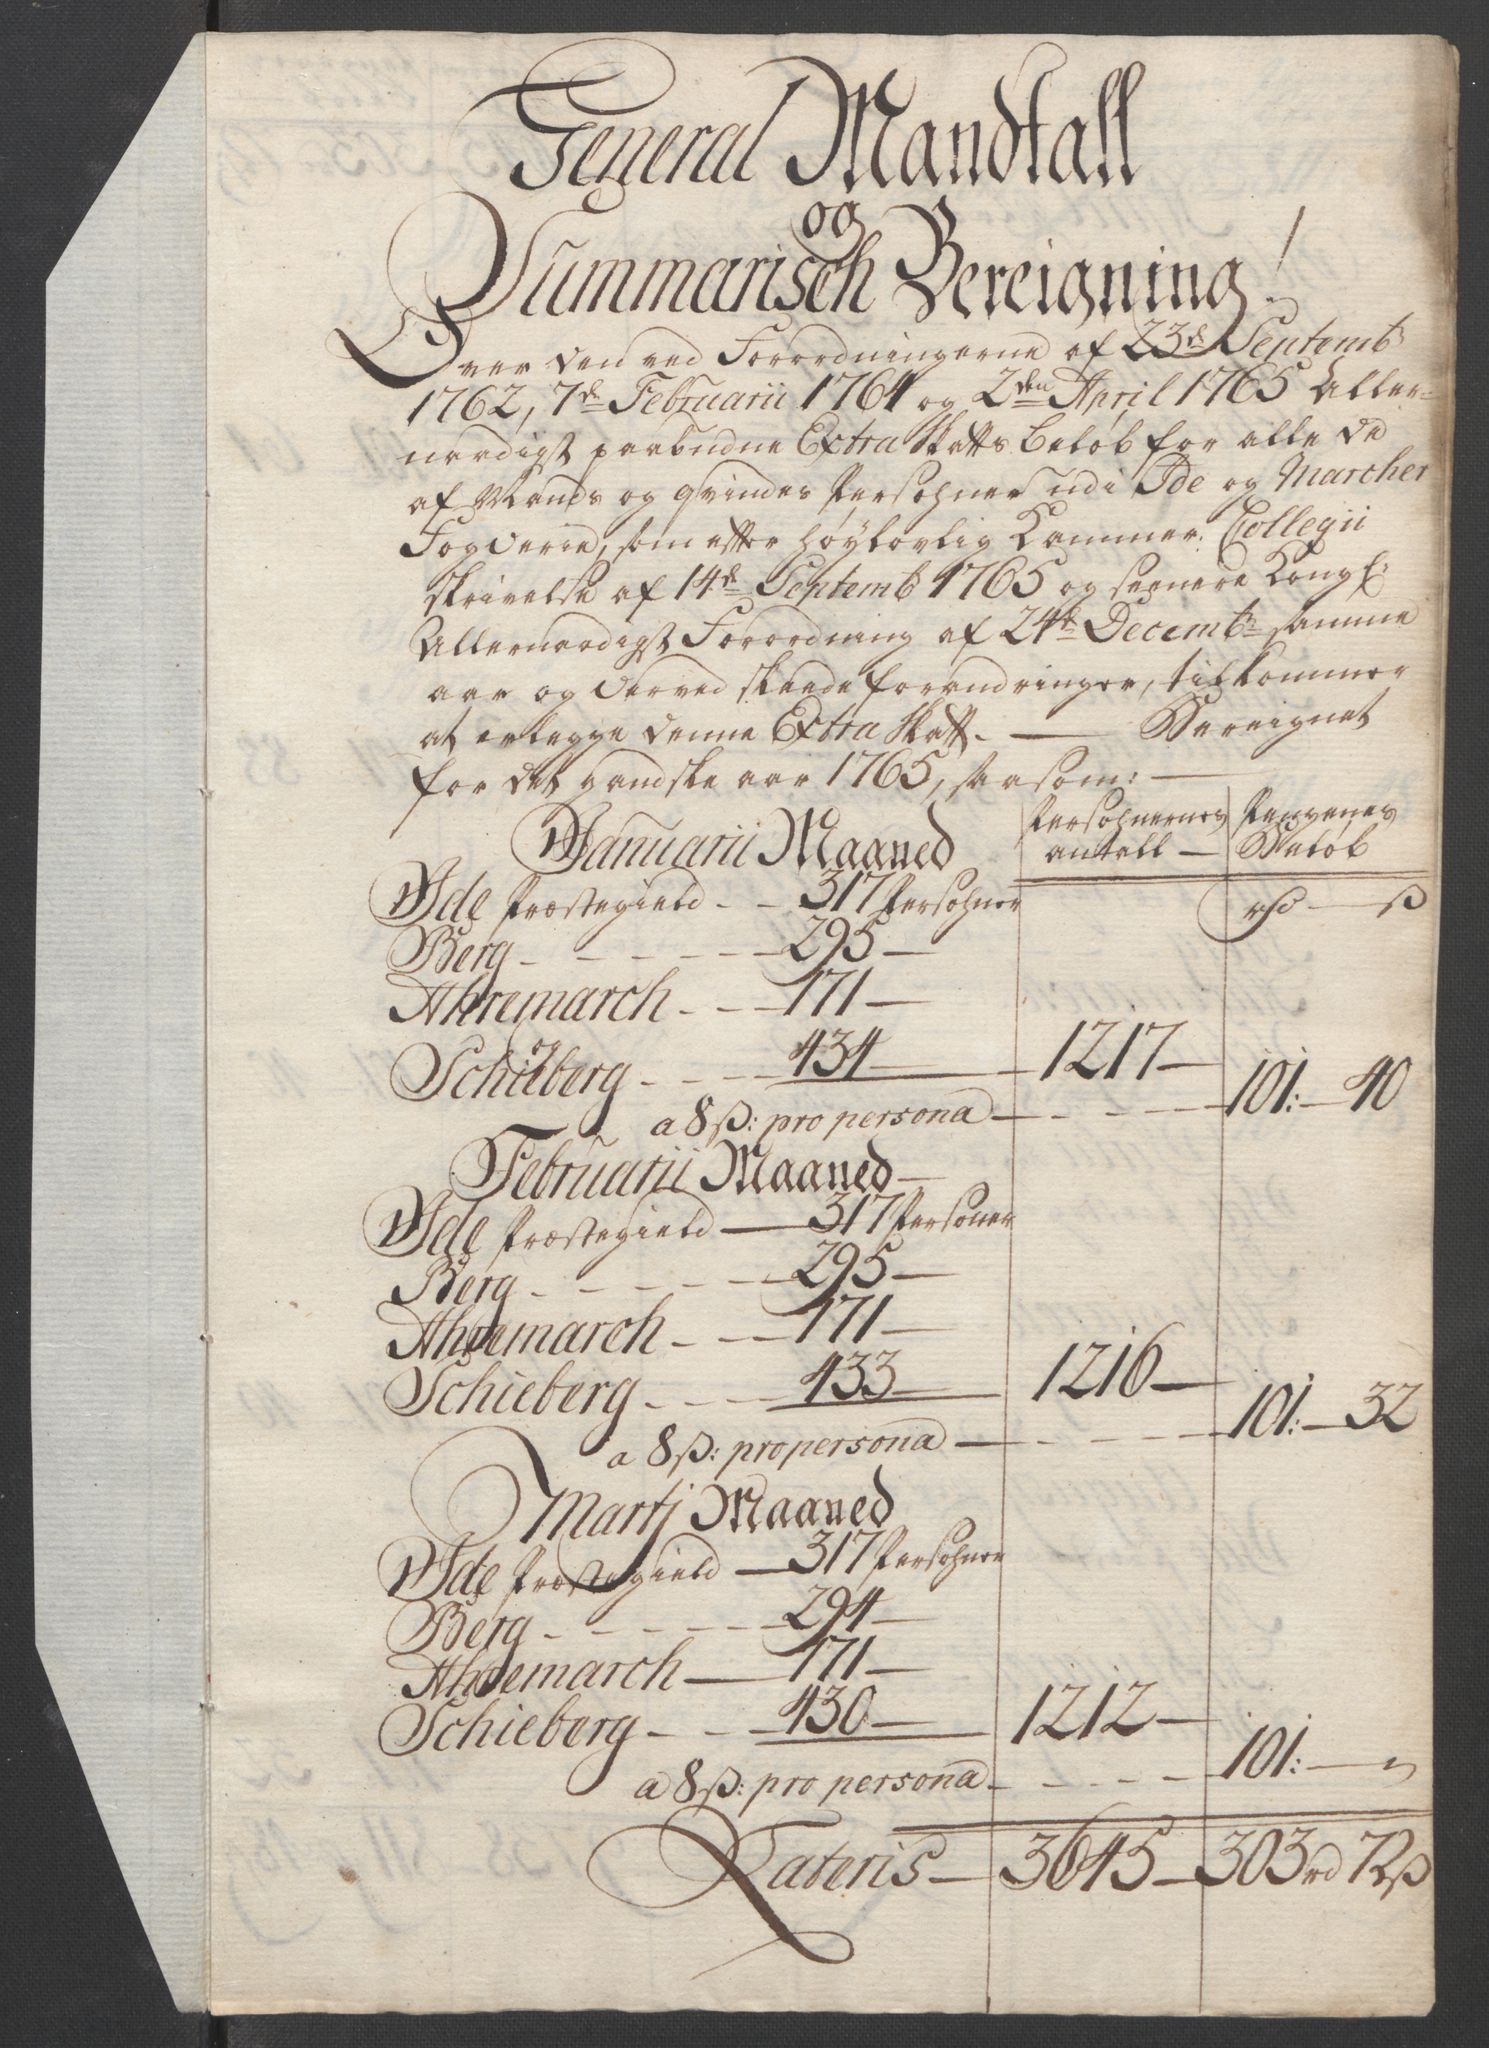 General Mandtall
og
Summarisch Bereigning!
Over den ved Forordningerne af 23de Septembr
1762, 7de Februarii 1764 og 2den April 1765 Aller-
naadigst paabudne Extra Skatts beløb for alle de
af Mands og qvindes Persohner udi Ide og Marcher
Fogderie, som efter høylovlig Cammer: Collegii
skrivelse af 14de Septemb 1765 og seenere Kongl:
Allernaadigst Forordning af 24de Decembr samme
aar og derved skeede forandringer, tilkommer
at erlegge denne Extra Skatt. — Bereignet
for det gandske aar 1765, saasom: —
Januarii Maaned Persohnernes Pengenes
antall — Beløb
Ide Præstegield - - 317 Persohner rd — ß
Berg - - - - - - 295 —
Ahremarch - - - 171 —
og
Schieberg - - - - 434 — 1217 —
a 8 ß: pro persona — - - - — 101: — 40
Februarii Maaned —
Ide Præstegield — 317 Personer
Berg - - - - - - 295 —
Ahremarch - - - 171 —
Schieberg - - - - 433 — 1216 —
a 8 ß: pro persona — - - - - 101: — 32
Martj Maaned
Ide Præstegield — 317 Persohner
Berg - - - - - - 294 —
Ahremarch — 171 —
Schieberg - - - - 430 — 1212 —
a 8 ß: pro persona - - - - - 101: — "
Lateris — 3645 — 303 rd 72 ß